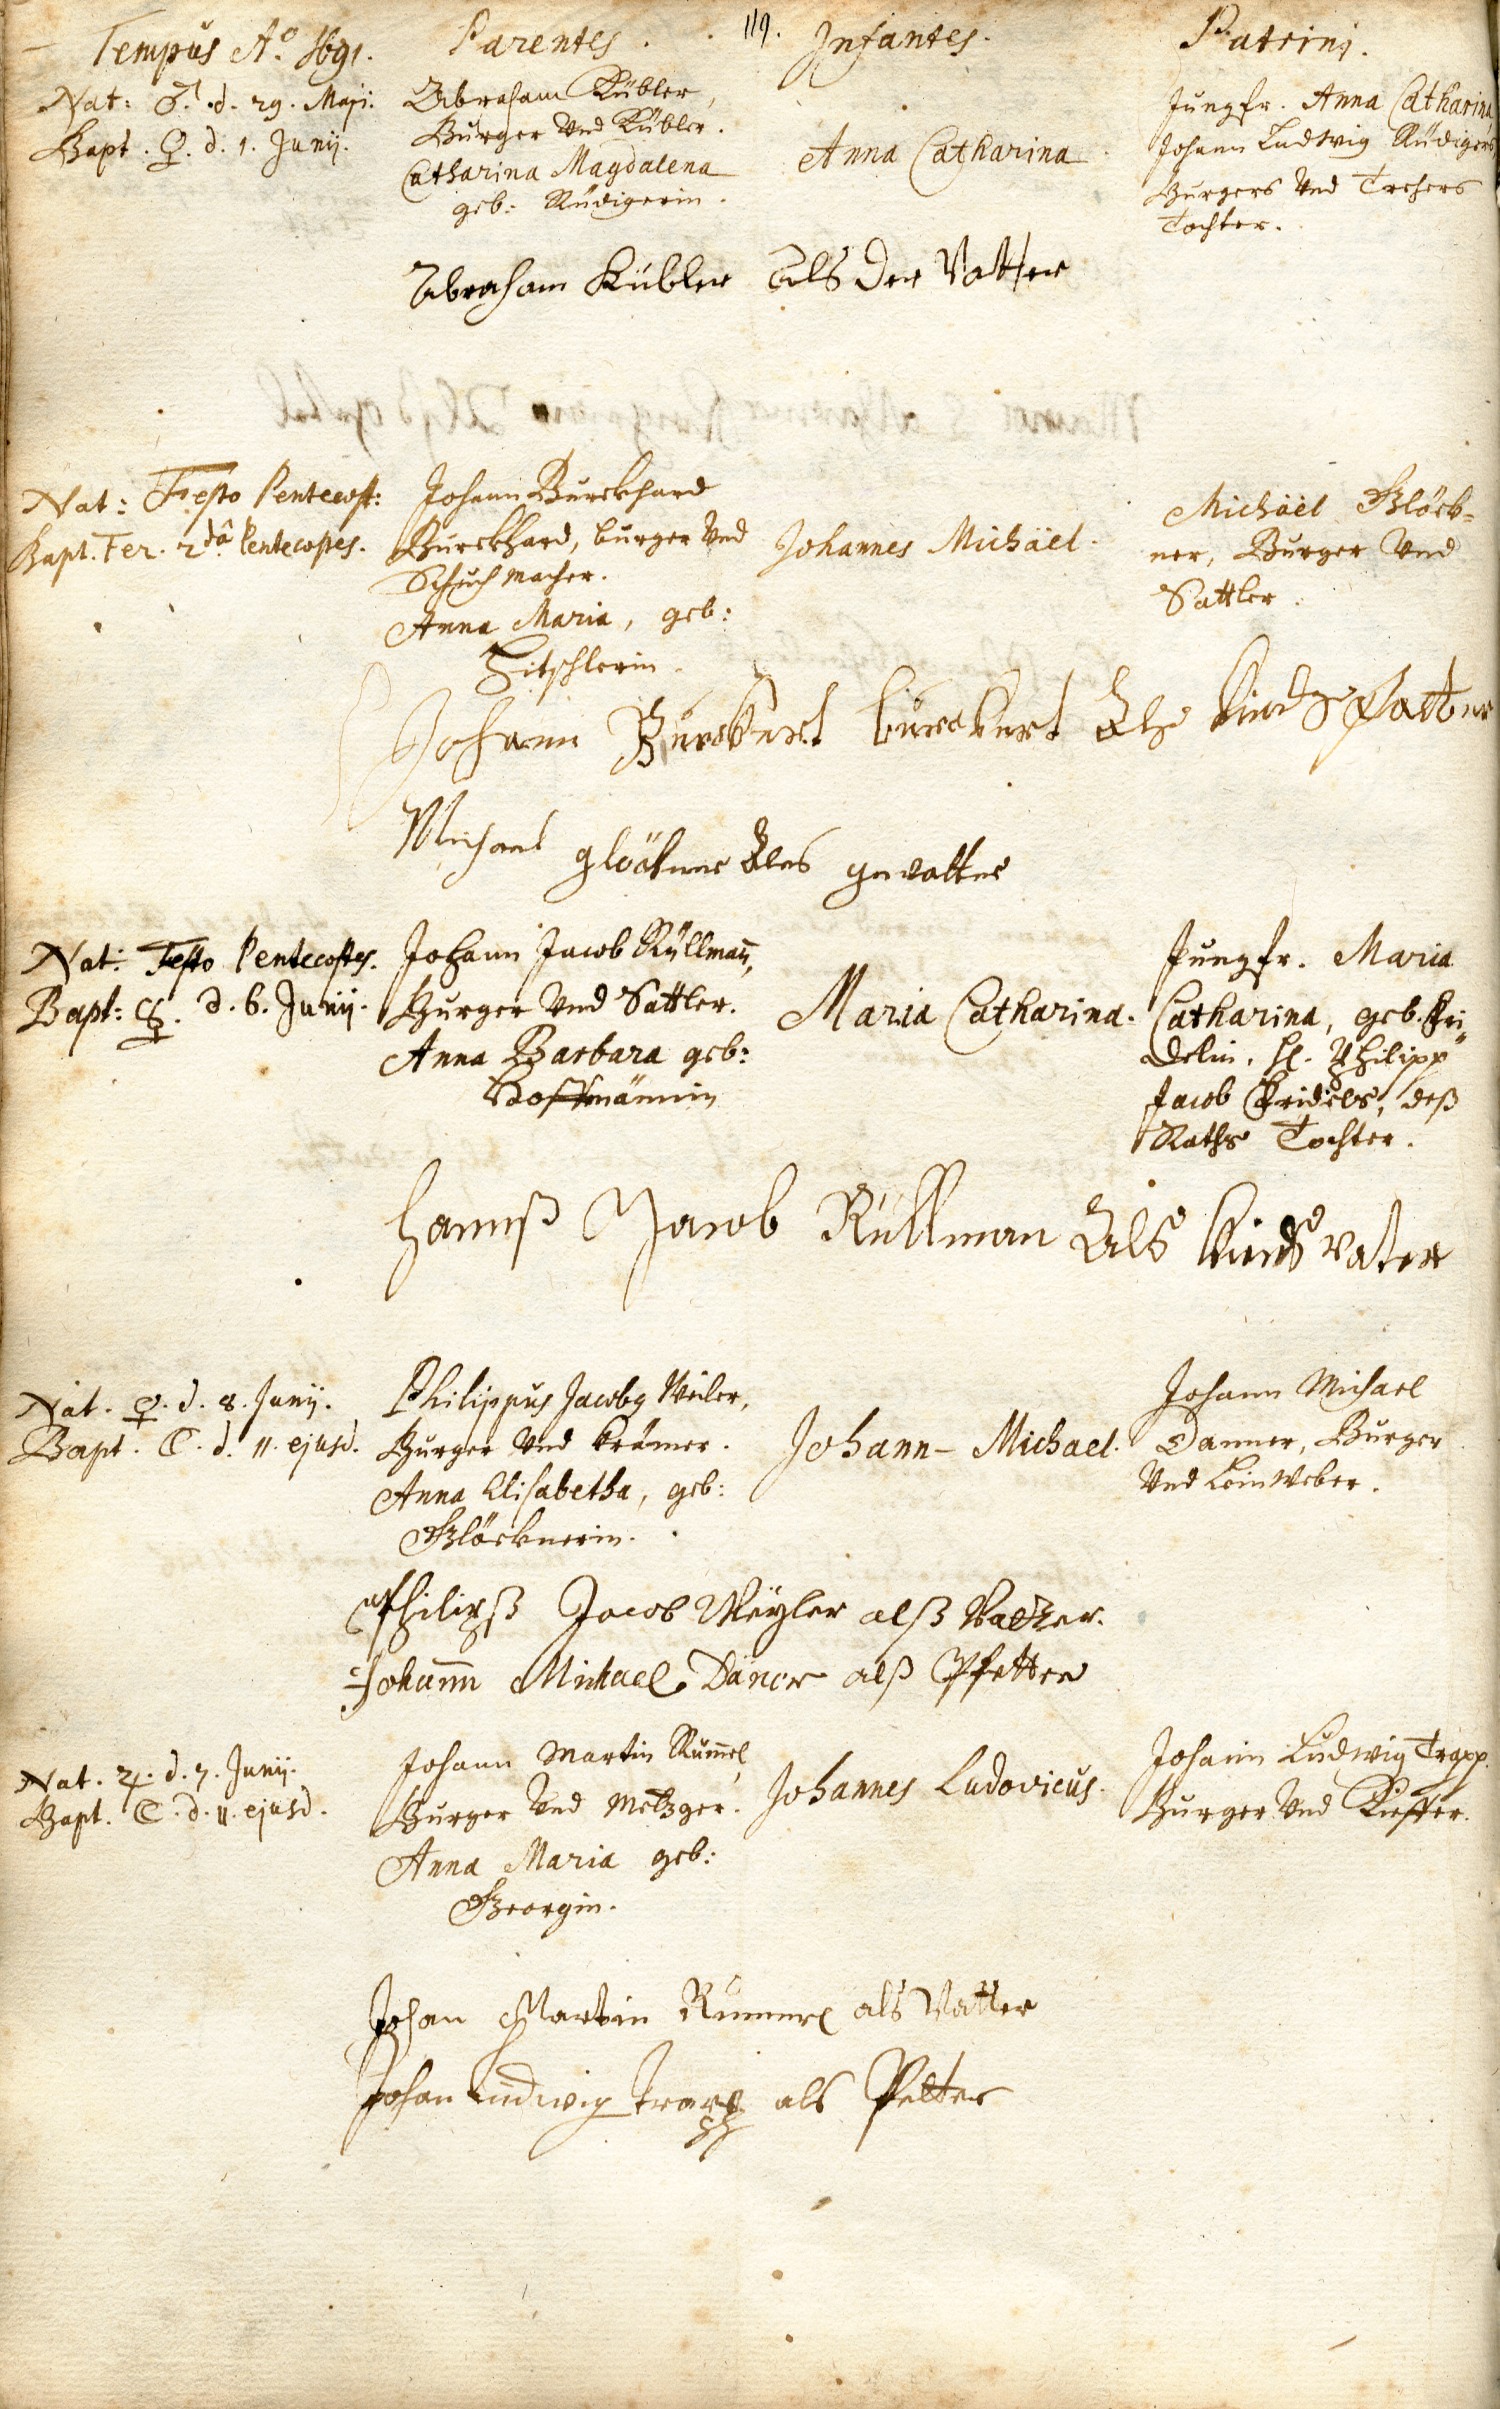 119.
Tempus Aº 1691. Parentes. Infantes. Patrini.
Nat: ♂. d. 29. Maji.
Bapt. ♀. d. 1. Junij.
Abraham Kübler,
Burger Und Kübler.
Catharina Magdalena
geb: Rüdigerin.
Anna Catharina
Jungfr. Anna Catharina
Johann Ludwig Rüdigers,
Burgers Und Trehers
Tochter.
Abraham Kübler Als der Vatter
Nat: Festo Pentecost:
Bapt. Fer. 2dâ Pentecostes.
Johann Burckhard
Burckhard, burger Und
Schuchmacher.
Anna Maria, geb:
Zitschlerin.
Johannes Michäel.
Michäel Glöck-
ner, Burger Und
Sattler.
Johann Burckhert burckhert Als Kinds Vatter
Michael glöckner Als gevatter
Nat: Festo Pentecostes.
Bapt: ☿. d. 6. Junij.
Johann Jacob Rüllmañ,
Burger Und Sattler.
Anna Barbara geb:
Hoffmännin
Maria Catharina.
Jungfr. Maria
Catharina, geb. Fri-
delin, H. Philipp
Jacob Fridels, deß
Raths Tochter.
Hannß Jacob Rüllman Als Kinds vater
Nat. ♀. d. 8. Junij.
Bapt. ☾. d. 11. ejusd.
Philippus Jacobg Weiler,
Burger Und Krämer.
Anna Elisabetha, geb:
Glöcknerin.
Johann-Michael.
Johann Michael
Danner, Burger
Und Leinweber.
Philipß Jacob Weyler alß Vatter.
Johann Michael Daner alß Pfetter
Nat. ♃. d. 7. Junij.
Bapt. ☾. d. 11. ejusd.
Johann Martin Rum̄el,
Burger Und Metzger.
Anna Maria geb:
Georgin.
Johannes Ludovicus.
Johann Ludwig Trapp.
Burger Und Kieffer.
Johan Martin Rummel als Vatter
Johan Ludwig Trapp als Petter